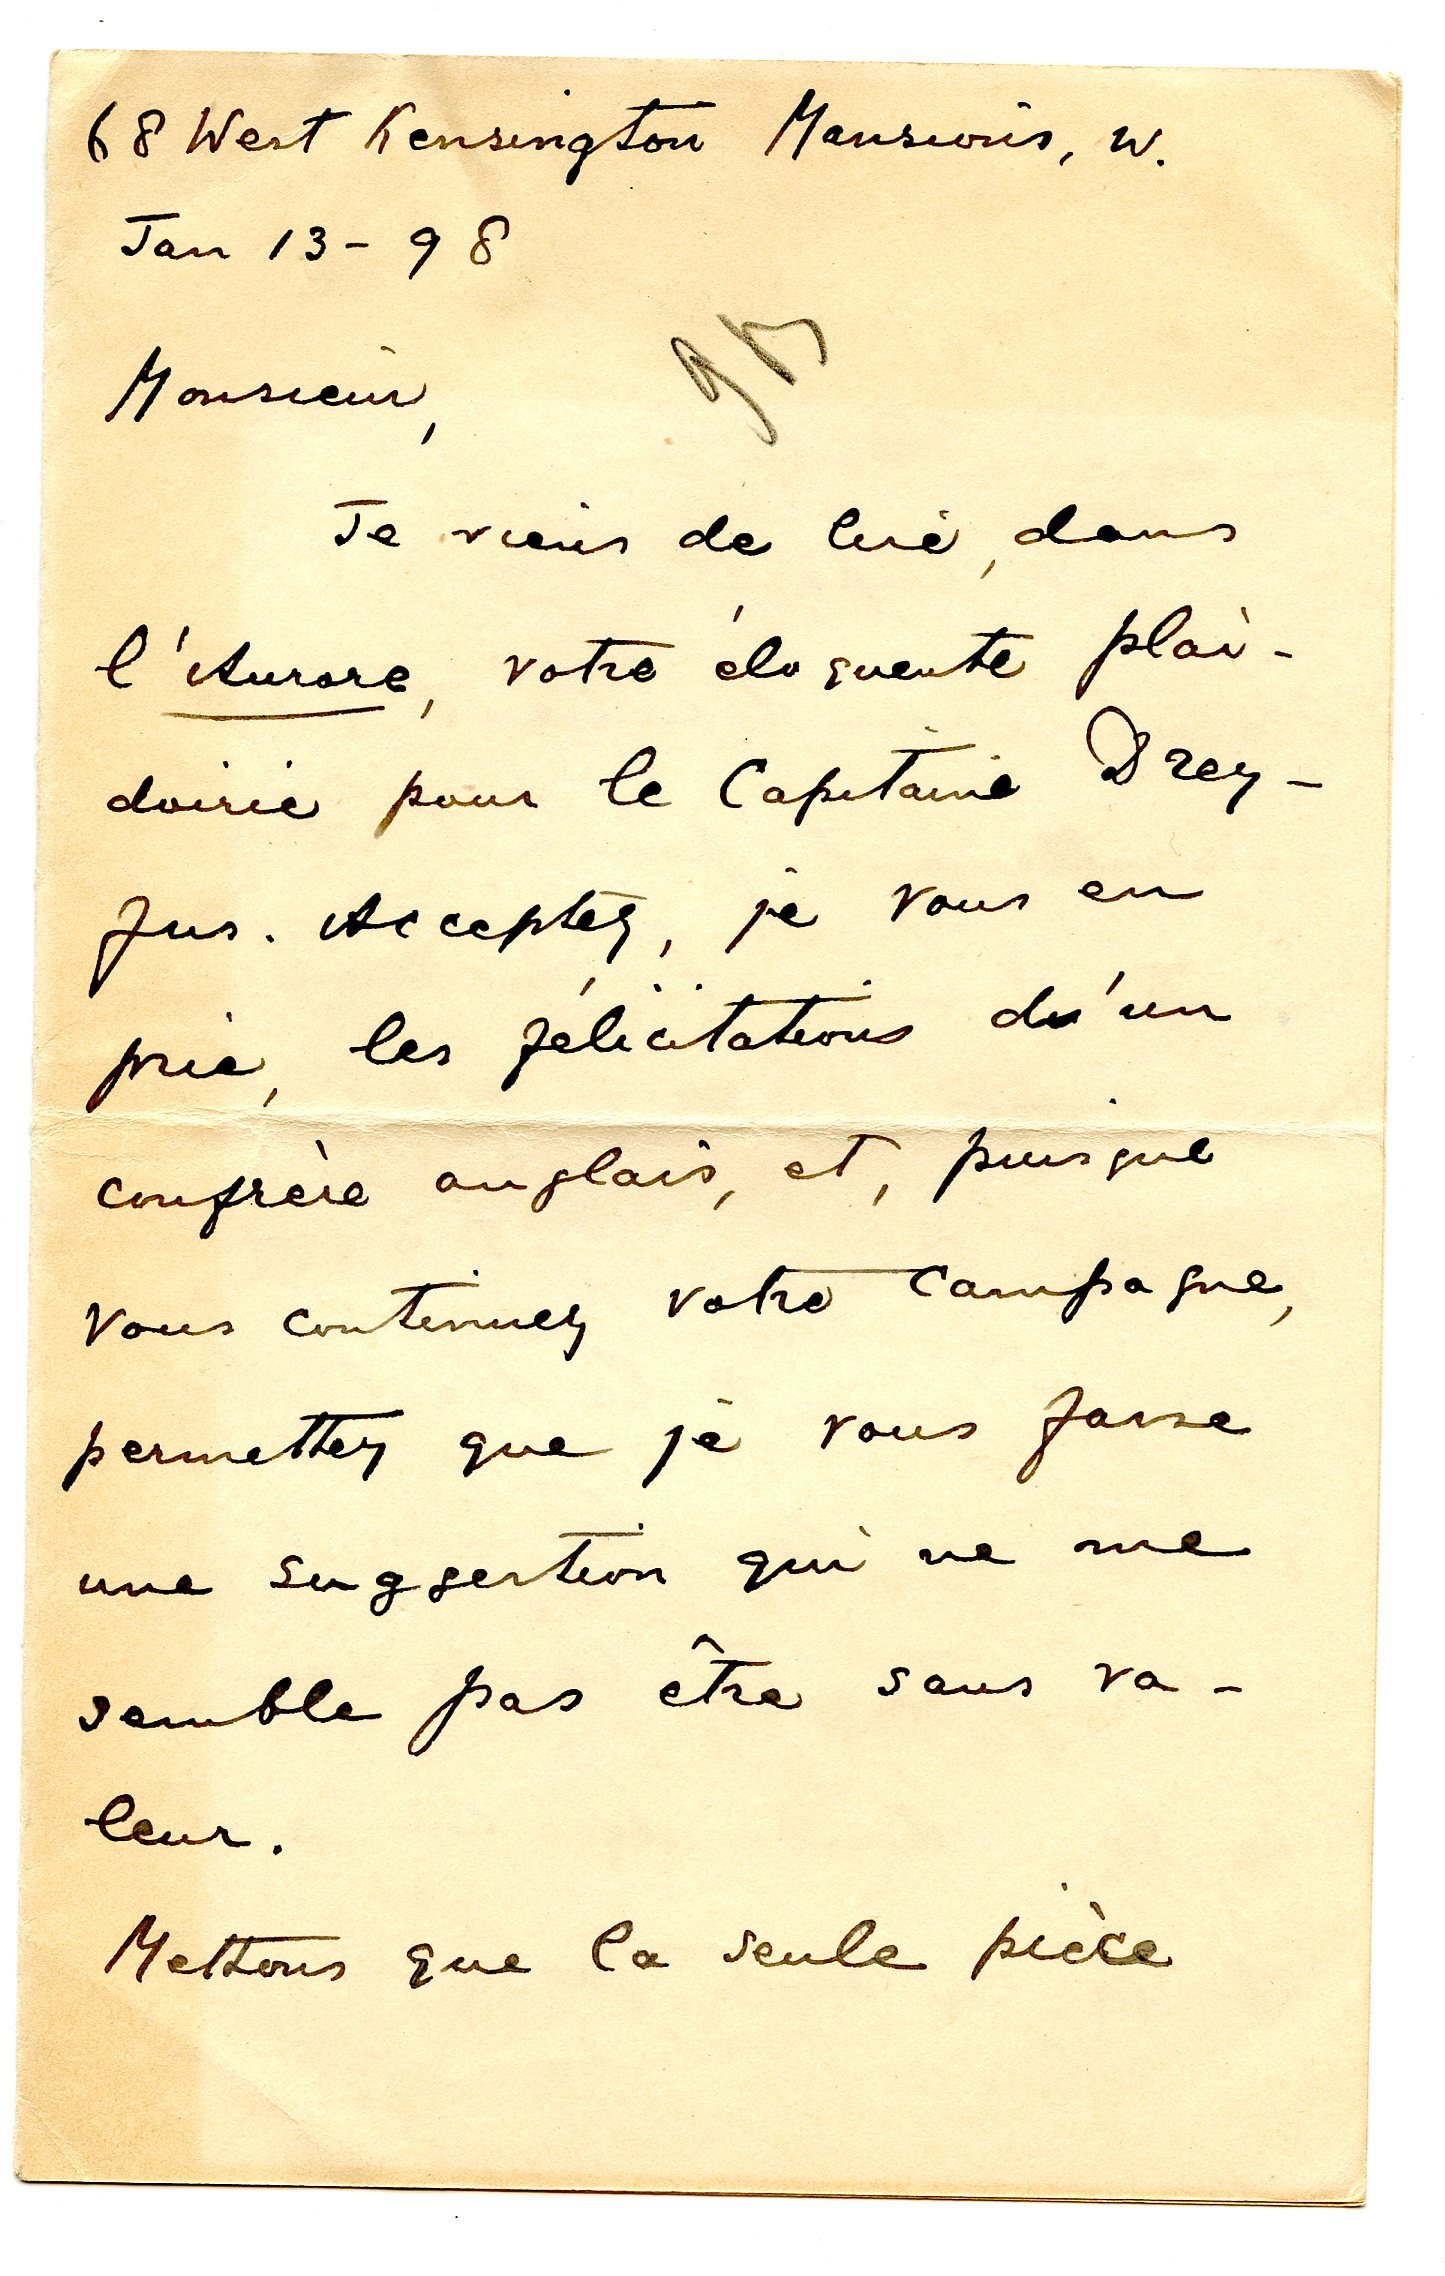 68 West Kensington Mansions, W.
Jan 13 - 98
Monsieur,
Je viens de lire, dans
l'Aurore, votre éloquente plai-
doirie pour le Capitaine Drey-
fus. Acceptez, je vous en
prie, les félicitations d'un
confrère anglais, et, puisque
vous continuez votre campagne,
permettez que je vous fasse
une suggestion qui ne me
semble pas être sans va-
leur.
Mettons que la seule pièce